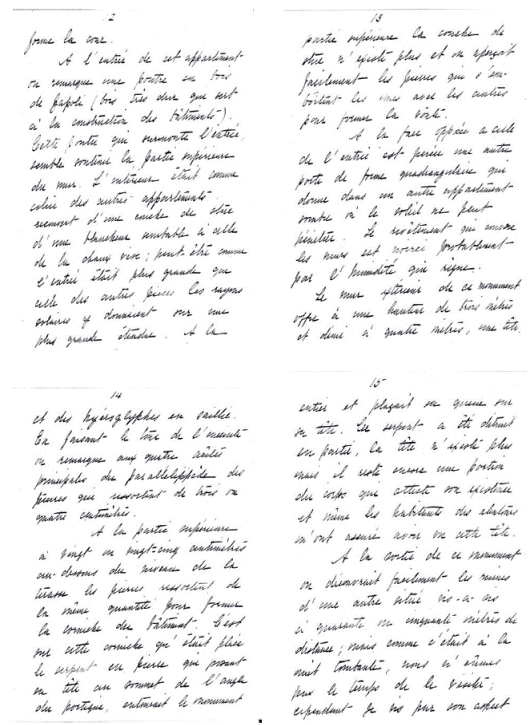 12
forme la cour.
A l'entrée de cet appartement
on remarque une poutre en bois
de papolé (bois très dur qui sert
à la construction des bâtiments).
Cette poutre qui surmonte l'entrée
semble soutenir la partie supérieure
du mur. L'intérieur était comme
celui des autres appartements
d'une couche de stuc
d'une blancheur semblable à celle
de la chaux vive; peut-être comme
l'entrée était plus grande que
celle des autres pièces les rayons
solaires y donnaient sur une
plus grande étendue. A la
13
partie supérieure la couche de
stuc n'existe plus et on aperçoit
facilement les pierres qui s'em-
boîtent les unes avec les autres
pour former la voûte.
A la face opposée à celle
de l'entrée est percée une autre
porte de forme quadrangulaire qui
donne dans un autre appartement
sombre où le soleil ne peut
pénétrer. Le revêtement qui couvre
les murs est noirci probablement
par l'humidité qui règne.
Le mur extérieur de ce monument
offre à une hauteur de trois mètres
et demi à quatre mètres, une tête
14
et des hyéroglyphes en saillie.
En faisant le tour de l'enceinte
on remarque aux quatre
principales du parallélépipède des
pierres que ressortent de trois ou
quatre centimètres.
A la partie supérieure
à vingt ou vingt-cinq centimètres
au-dessous du niveau de la
terasse les pierres ressortent de
la même quantité pour former
la corniche du bâtiment. C'est
sur cette corniche qu'était placé
le serpent en pierre qui prenant
sa tête au sommet de l'angle
du portique, entourait le monument
15
entier et plaçait sa queue sur
sa tête. Le serpent a été détruit
en partie, la tête n'existe plus
mais il reste encore une portion
du corps que atteste son existence
et même les habitants des
m'ont assuré avoir vu cette tête.
A la sortie de ce monument
on découvrait facilement les ruines
d'une autre situé vis-à-vis
à quarante ou cinquante mètres de
distance; mais comme c'était à la
nuit tombante, nous n'eûmes
pas le temps de le visiter;
cependant je vis par son aspect